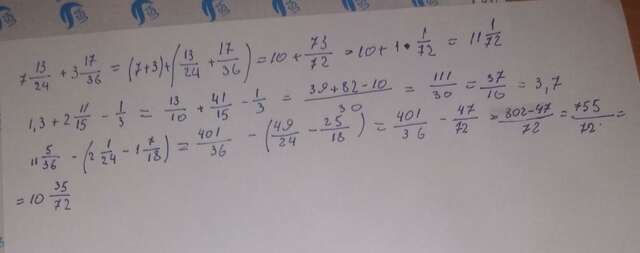 7 13/24 + 3 17/36 = (7+3)+(13/24 + 17/36) = 10 + 73/72 = 10+1 1/72 = 11 1/72
1,3 + 2 11/15 - 1/3 = 13/10 + 41/15 - 1/3 = (39+82-10)/30 = 111/30 = 37/10 = 3,7
11 5/36 - (2 1/24 - 1 7/18) = 401/36 - (49/24 - 25/18) = 401/36 - 47/72 = (802-47)/72 = 755/72 =
= 10 35/72